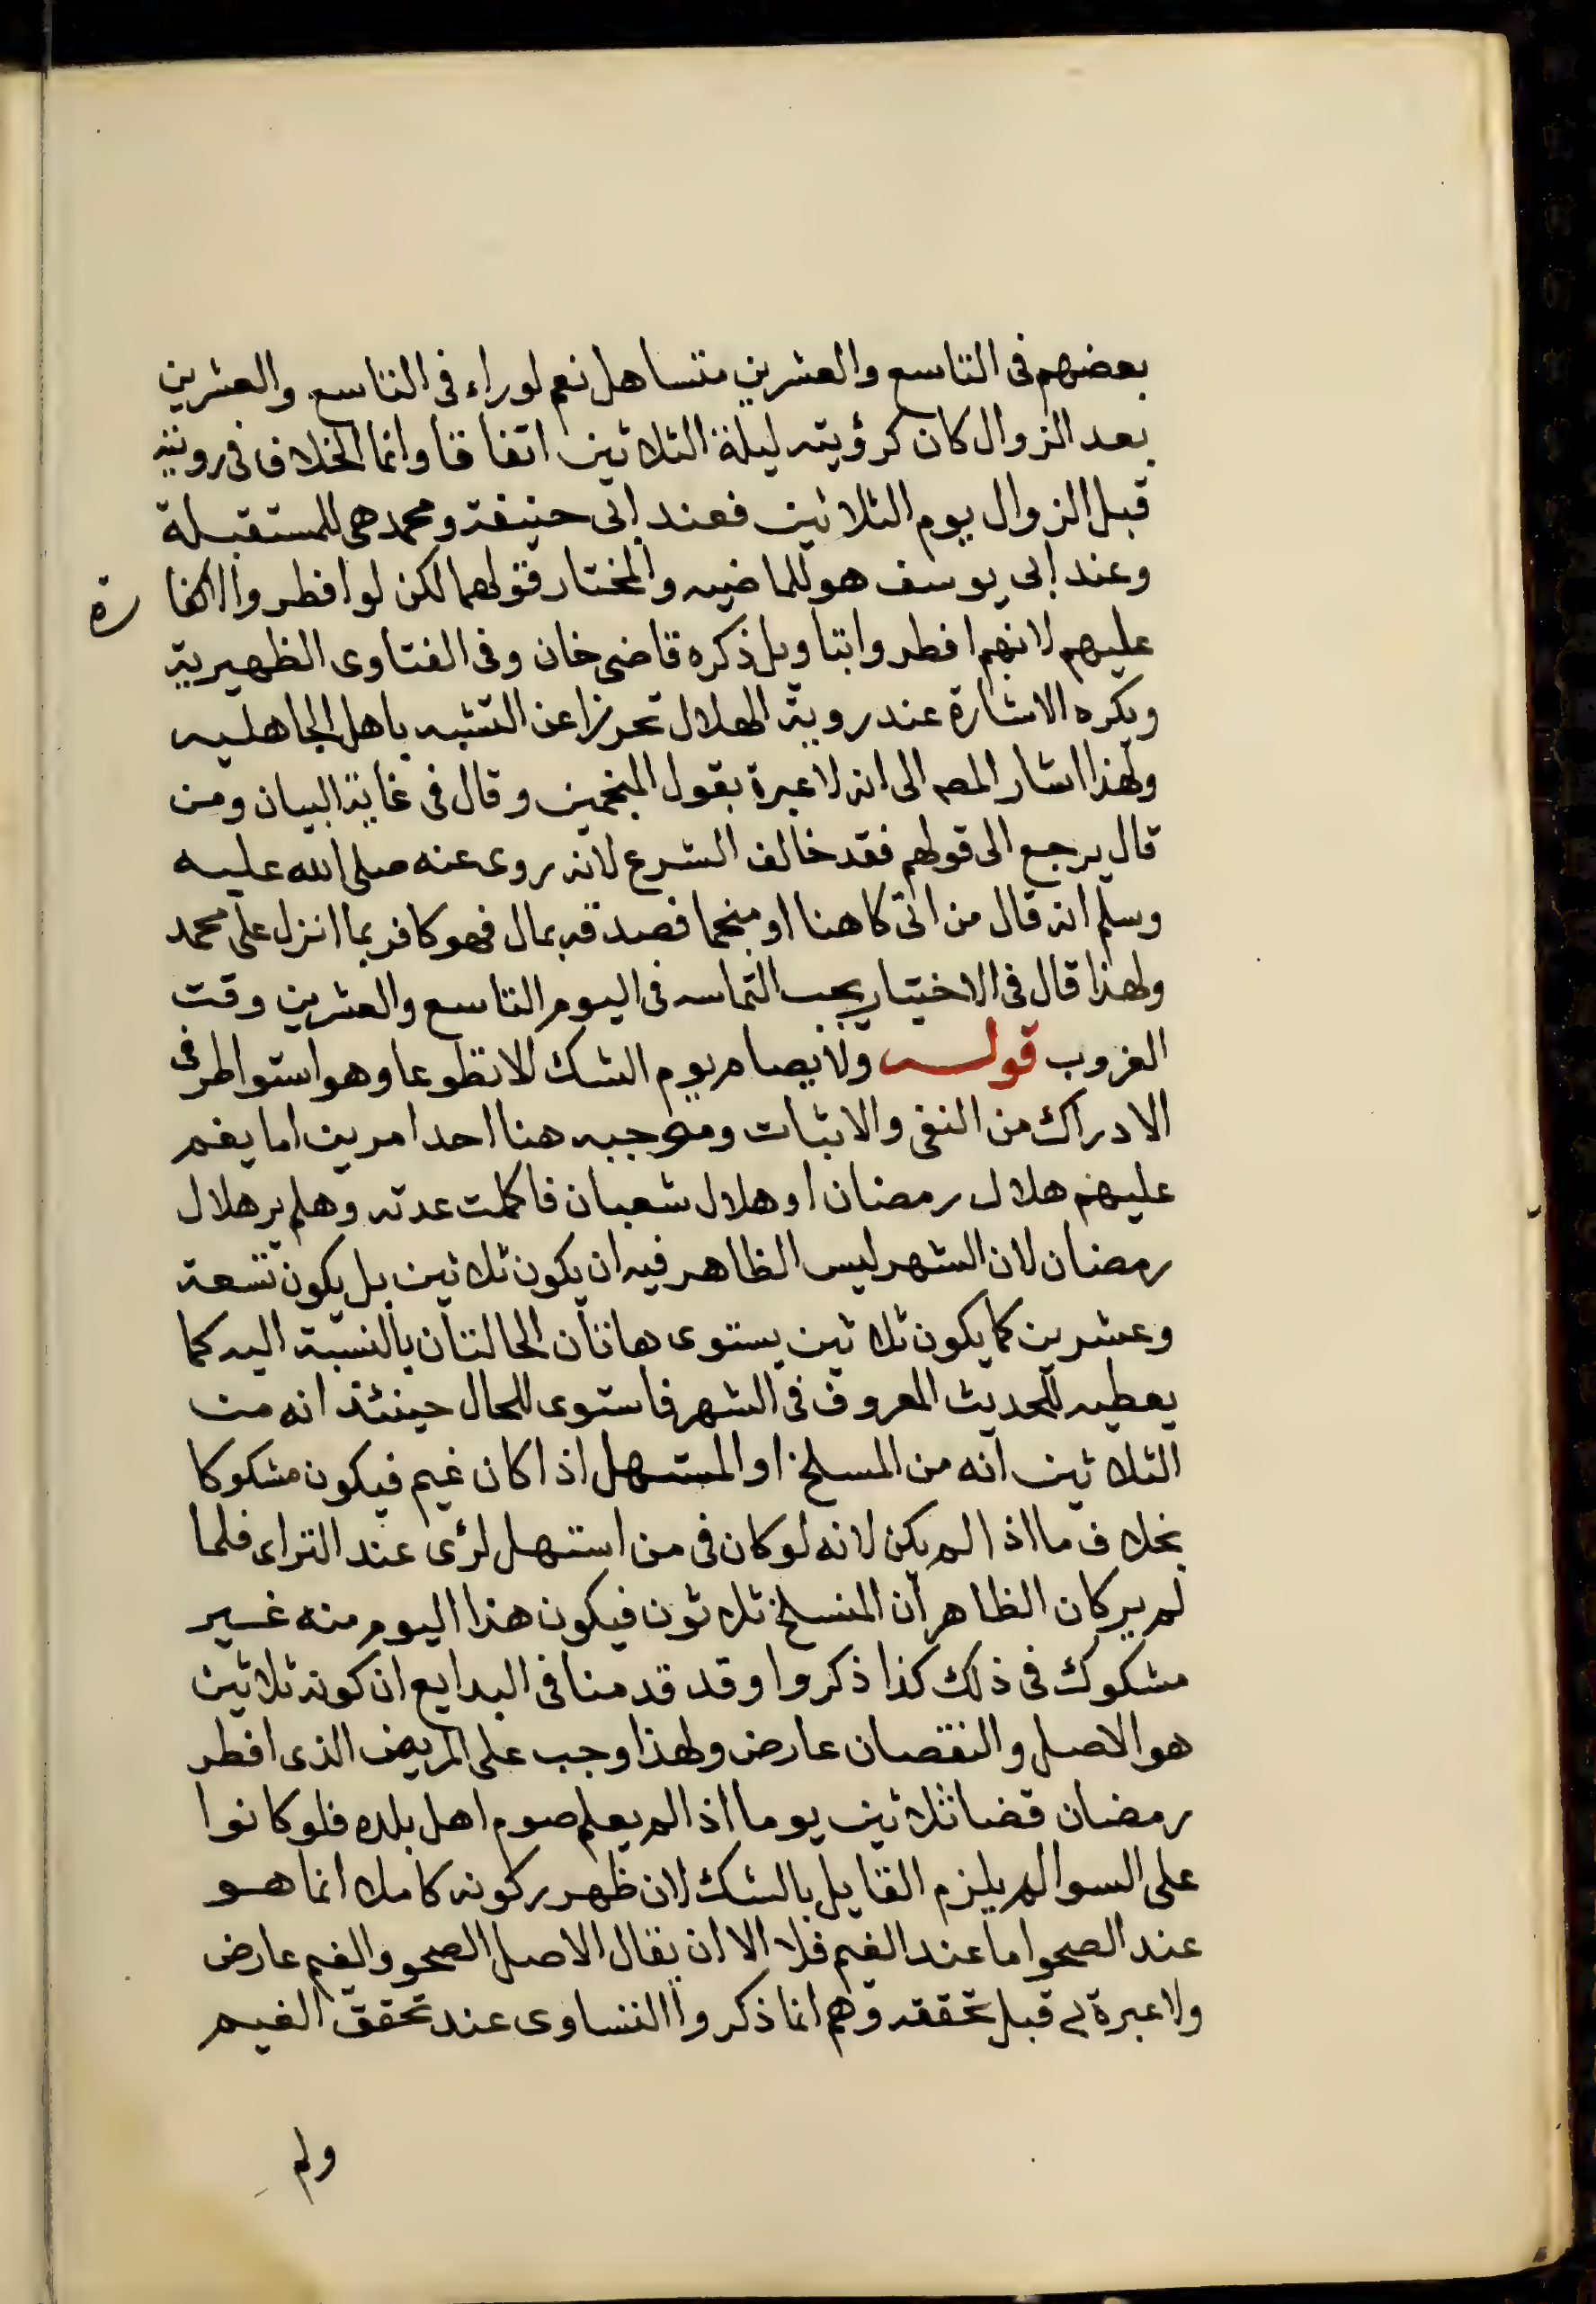 بعضهم فى التاسع والعشرين متساهل نعم لوراء فى التاسع والعشرين
بعد الزوال كان كرؤيته ليلة الثلاثين اتفاقا وانما الخلاف فى رويته
قبل الزوال يوم الثلاثين فعند ابى حنيفة ومحمد هى للمستقبلة
وعند ابى يوسف هو للماضيه والمختار قولهما لكن لو افطروا لا كفا رة
عليهم لانهم افطروا بتاويل ذكره قاضى خان وفى الفتاوى الظهيرية
ويكره الاشارة عند روية الهلال تحرزا عن التشبه باهل الجاهليه
ولهذا اشار المص الى انه لا عبرة بقول المنجمين وقال فى غاية البيان ومن
قال يرجع الى قولهم فقد خالف الشرع لانه روى عنه صلى الله عليه
وسلم انه قال من اتى كاهنا او منجما فصدقه بمال فهو كافر بما انزل على محمد
ولهذا قال فى الاختيار يجب التماسه فى اليوم التاسع والعشرين وقت
الغروب قوله ولا يصام يوم الشك الا تطوعا وهو استوا طرفى
الادراك من النفى والاثبات وموجبه هنا احد امرين اما يغم
عليهم هلال رمضان او هلال شعبان فاكملت عدته وهلم ير هلال
رمضان لان الشهر ليس الظاهر فيه ان يكون ثلاثين بل يكون تسعة
وعشرين كما يكون ثلاثين يستوى هاتان الحالتان بالنسبة اليه كما
يعطيه للحديث المعروف فى الشهر فاستوى للحال حينئذ انه من
الثلاثين انه من المسلخ او المستهل اذا كان غيم فيكون مشكوكا
بخلاف ما اذا لم يكن لانه لو كان فى من استهل لرئ عند التراى فلما
لم ير كان الظاهر ان المنسلخ ثلاثون فيكون هذا اليوم منه غير
مشكوك فى ذلك كذا ذكروا وقد قدمنا فى البدايع ان كونه ثلاثين
هو الاصل والنقصان عارض ولهذا وجب على المريض الذى افطر
رمضان قضا ثلاثين يوما اذا لم يعلم صوم اهل بلده فلو كانوا
على السوا لم يلزم القايل بالشك لان ظهر ركونه كاملا انما هو
عند الصحو اما عند الغيم فلا الا ان يقال الاصل الصحو والغيم عارض
ولا عبرة به قبل تحققه وهم انما ذكروا التساوى عند تحقق الغيم
ولم